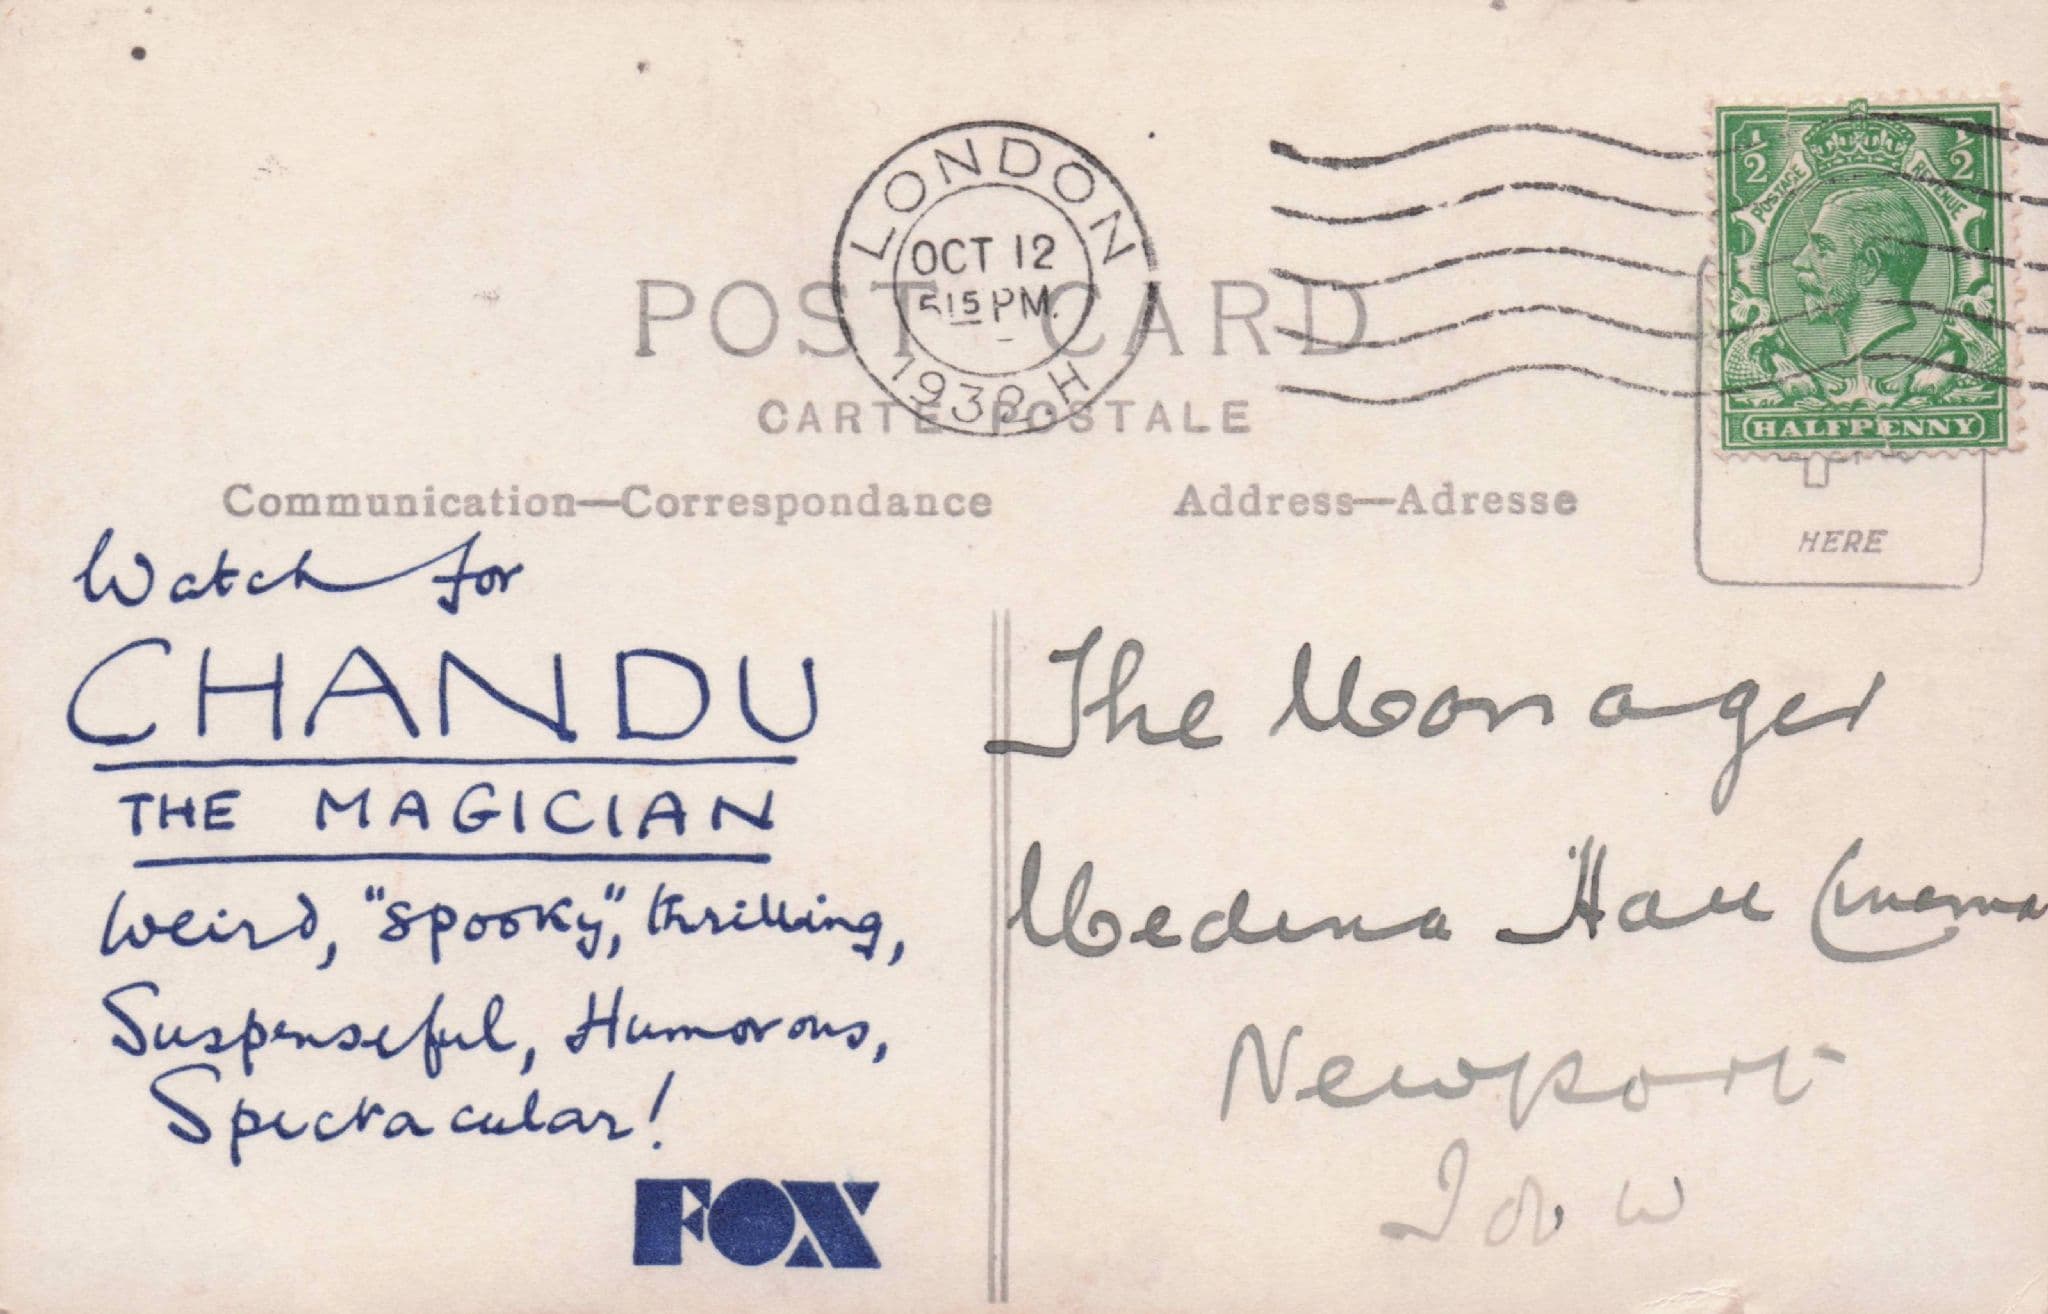 LONDON
OCT 12
5 15 PM.
1932. H
½ ½
POSTAGE REVENUE
HALFPENNY
POST CARD
CARTE POSTALE
Communication—Correspondance
Address—Adresse
HERE
Watch for
CHANDU
THE MAGICIAN
Weird, "spooky", thrilling,
Suspenseful, Humorous,
Spectacular!
FOX
The Manager
Medina Hall Cinema
Newport
I o W